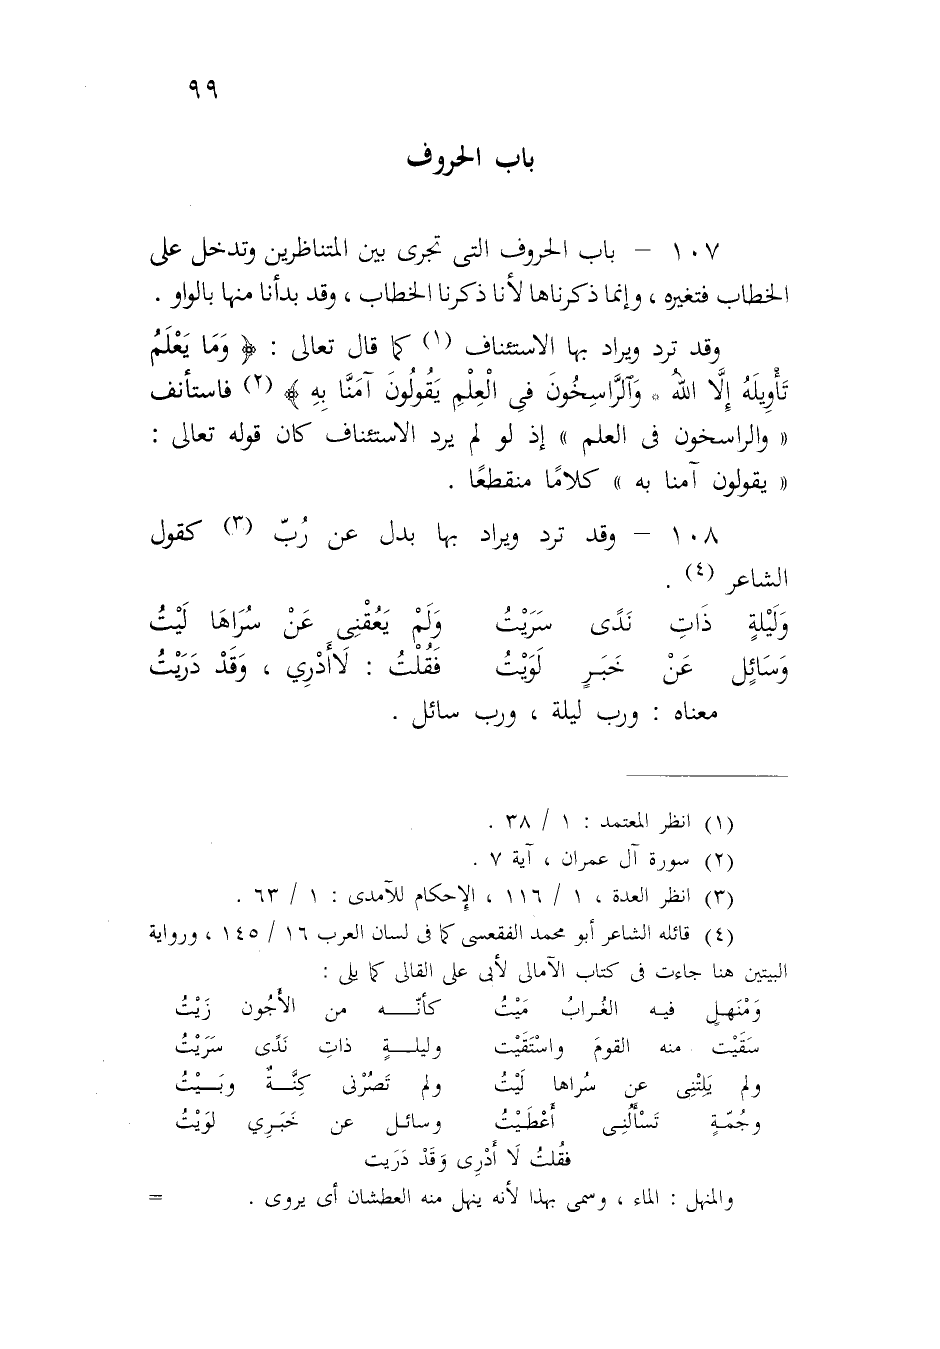 ٩٩
باب الحروف
١٠٧ – باب الحروف التى تجرى بين المتناظرين وتدخل على
الخطاب فتغيره ، وإنما ذكرناها لأنا ذكرنا الخطاب ، وقد بدأنا منها بالواو .
وقد ترد ويراد بها الاستئناف (١) كما قال تعالى : ﴿ وَمَا يَعْلَمُ
تَأْوِيلَهُ إِلَّا اللهُ * وَالرَّاسِخُونَ فِي الْعِلْمِ يَقُولُونَ آمَنَّا بِهِ ﴾ (٢) فاستأنف
« والراسخون فى العلم » إذ لو لم يرد الاستئناف كان قوله تعالى :
« يقولون آمنا به » كلامًا منقطعًا .
١٠٨ – وقد ترد ويراد بها بدل عن رُبّ (٣) كقول
الشاعر (٤) .
وَلَيْلةٍ ذَاتِ نَدًى سَرَيْتُ وَلَمْ يَعُقْنِى عَنْ سُرَاهَا لَيْتُ
وَسَائِلٍ عَنْ خَبَرٍ لَوَيْتُ فَقُلْتُ : لَاأَدْرِي ، وَقَدْ دَرَيْتُ
معناه : ورب ليلة ، ورب سائل .
(١) انظر المعتمد : ١ / ٣٨ .
(٢) سورة آل عمران ، آية ٧ .
(٣) انظر العدة ، ١ / ١١٦ ، الإحكام للآمدى : ١ / ٦٣ .
(٤) قائله الشاعر أبو محمد الفقعسى كما فى لسان العرب ١٦ / ١٤٥ ، ورواية
البيتين هنا جاءت فى كتاب الآمالى لأبى على القالى كما يلى :
وَمْنَهلٍ فيه الغُرابُ مَيْتُ كأنّـــه من الأَجُون زَيْتُ
سَقَيْت منه القومَ واسْتَقَيْت وليلـــةٍ ذاتِ نَدًى سَرَيْتُ
ولم يَلِتْنِى عن سُراها لَيْتُ ولم تَصُرْنى كِنَّــةٌ وبَــيْتُ
وجُمّةٍ تَسْأَلُنِـى أَعْطَيْتُ وسائـل عن خَبَرِي لوَيْتُ
فقُلتُ لَا أَدْرِى وَقَدْ دَرَيت
والمنهل : الماء ، وسمى بهذا لأنه ينهل منه العطشان أى يروى . =